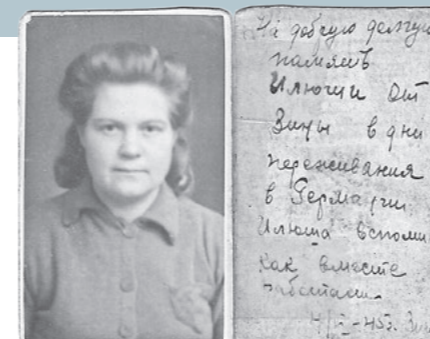 На добрую долгую
память
Илюши от
Зины в дни
переживания
в Германии
Илюша вспомни
как вместе
работали.
-45г.